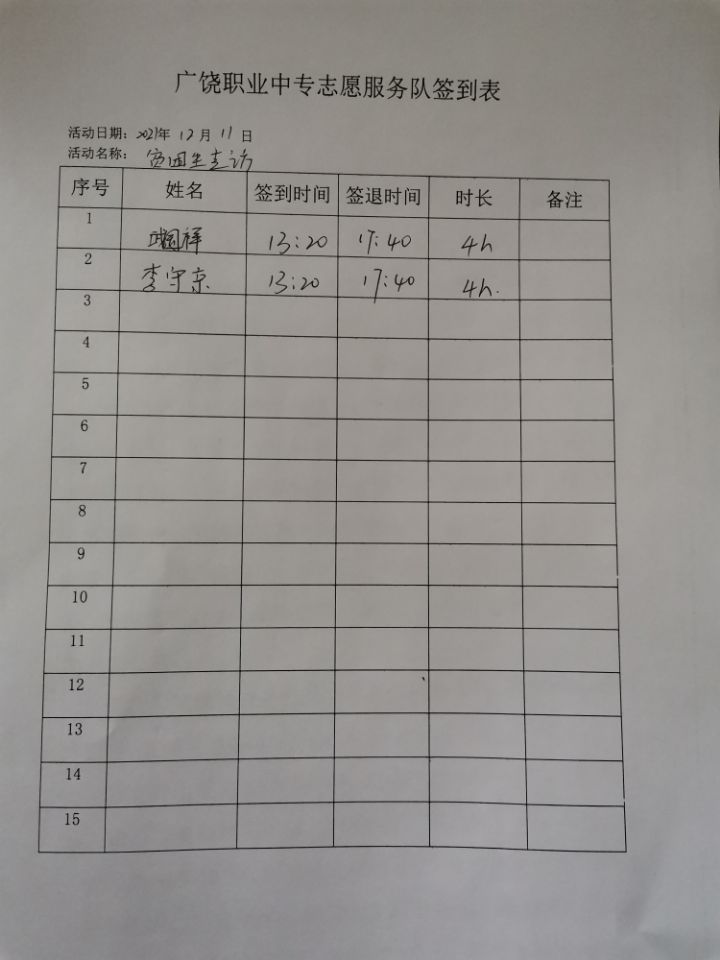 广饶职业中专志愿服务队签到表
活动日期：2021年 12月 11日
活动名称：贫困生走访
序号 姓名 签到时间 签退时间 时长 备注
1 国祥 13:20 17:40 4h
2 李守东 13:20 17:40 4h.
3
4
5
6
7
8
9
10
11
12
13
14
15